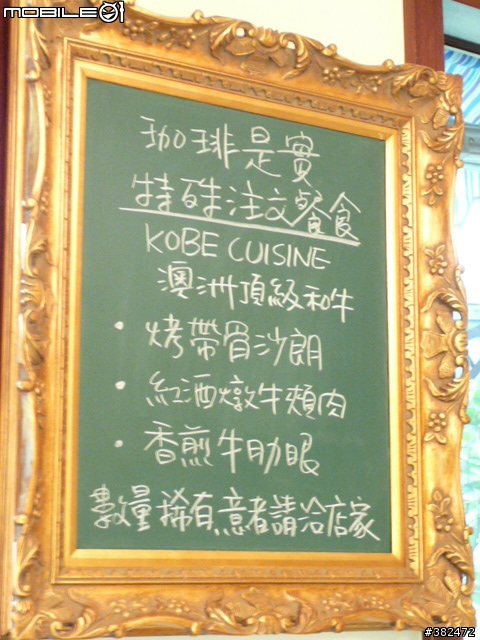 MOBILE01
珈琲是實
特殊注文餐食
KOBE CUISINE
澳洲頂級和牛
・烤帶骨沙朗
・紅酒燉牛頰肉
・香煎牛肋眼
數量稀有意者請洽店家
#382472